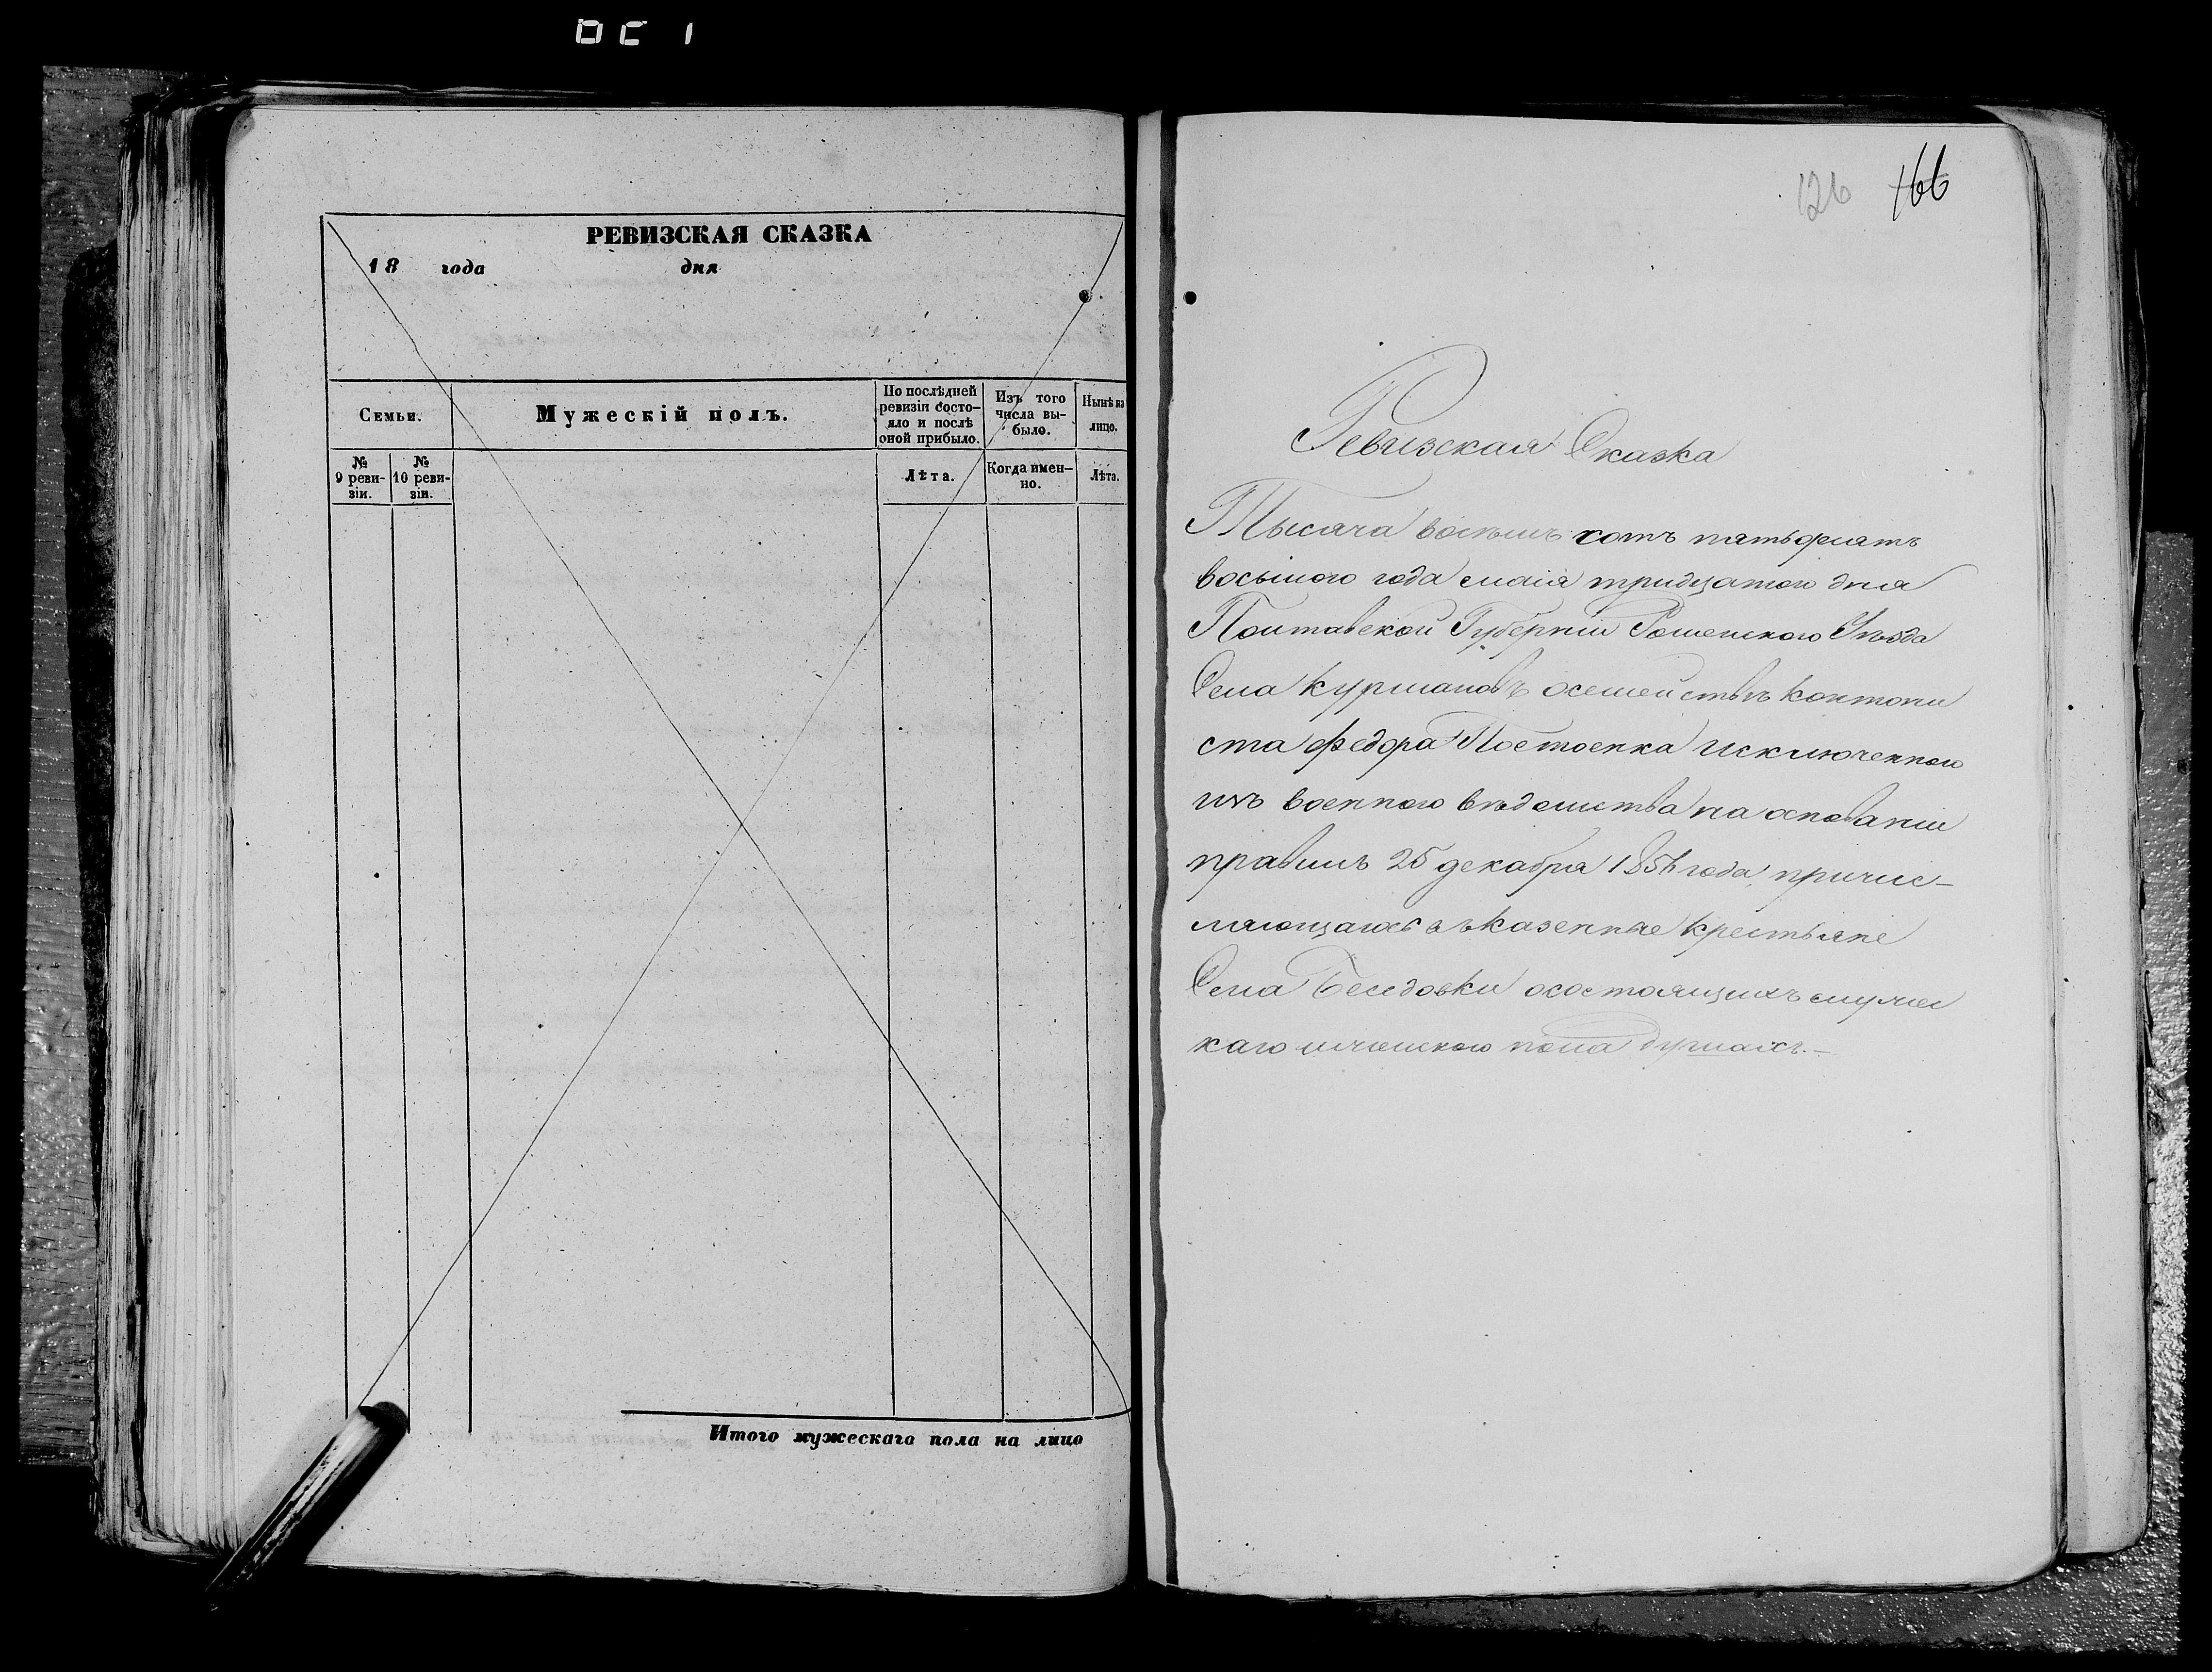 РЕВИЗСКАЯ СКАЗКА
18 года дня
Семьи.
Мужескій полъ.
По послѣдней
ревизіи состо-
яло и послѣ
оной прибыло.
Изъ того
числа вы-
было.
Нынѣ на
лицо.
№
9 реви-
зіи.
№
10 реви-
зіи.
Лѣта.
Когда имен-
но.
Лѣта.
Итого мужескаго пола на лицо
126 166
Ревизская Сказка
Тысяча восемь сотъ патьдесятъ
восьмого года маія тридцатого дня
Полтавской Губерніи Роменского Уѣзда
Села Курмановъ осемействѣ контони
ста Федора Постоенка исключенного
изъ военного вѣдомства на основаніи
правилъ 25 декабря 1856 года, причис-
ляющагося въ казенные крестьяне
Села Беседовки осостоящихъ мужес
каго иженского пола душахъ.-